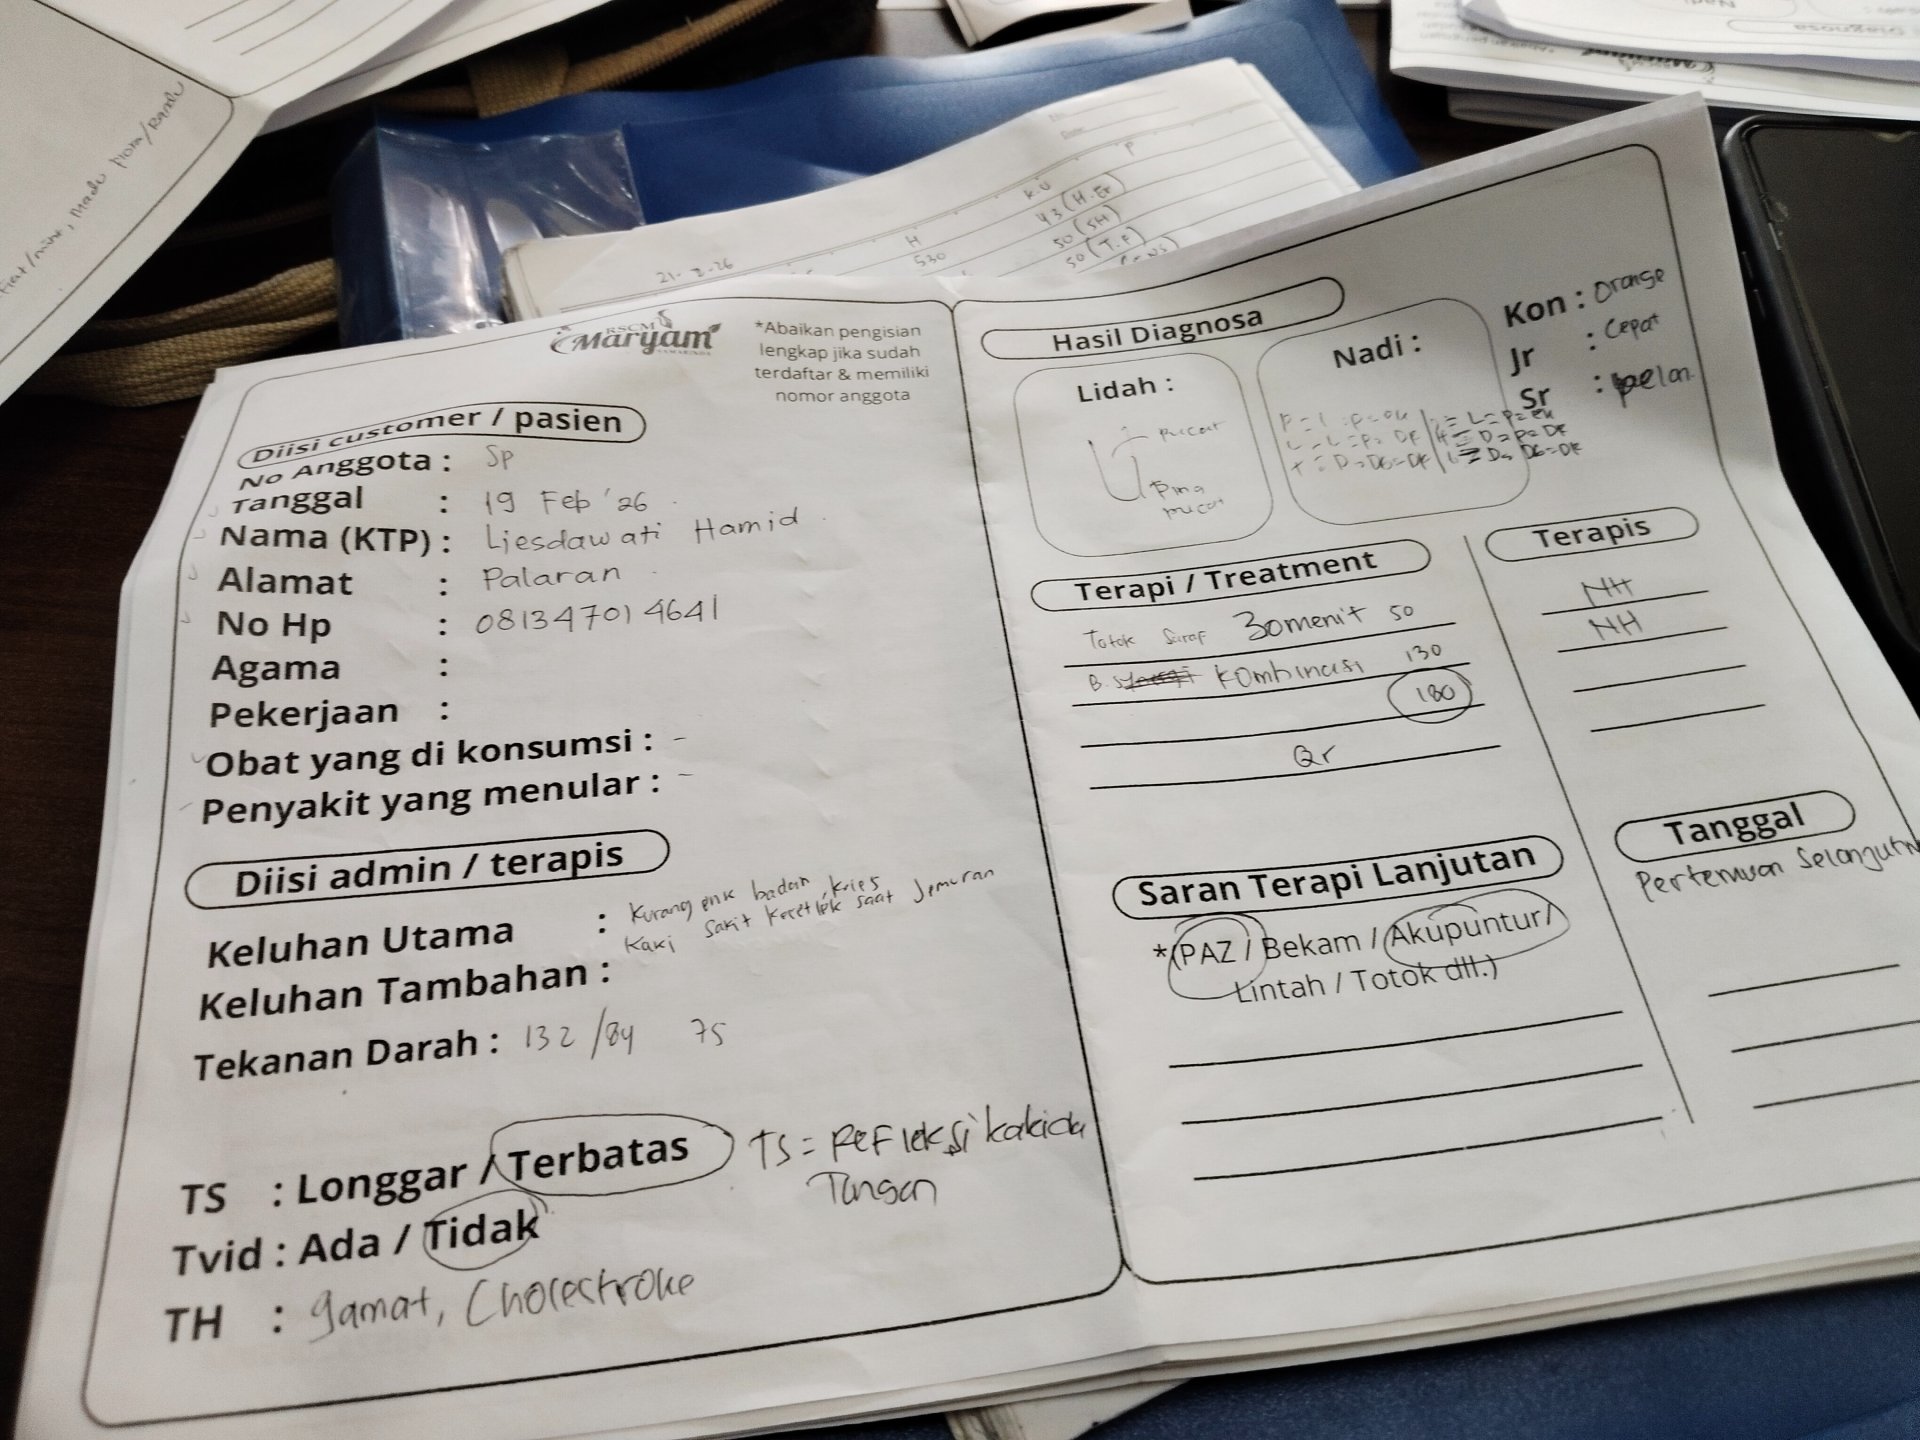 RSCM
Maryam
SAMARINDA
*Abaikan pengisian
lengkap jika sudah
terdaftar & memiliki
nomor anggota
Diisi customer / pasien
No Anggota : Sp
Tanggal : 19 Feb '26
Nama (KTP) : Liesdawati Hamid
Alamat : Palaran
No Hp : 081347014641
Agama :
Pekerjaan :
Obat yang di konsumsi : -
Penyakit yang menular : -
Diisi admin / terapis
Keluhan Utama : Kurang enk badan, kries
Kaki sakit kecetlek saat Jemuran
Keluhan Tambahan :
Tekanan Darah : 132/84 75
TS : Longgar / Terbatas TS = Refleksi kaki da
Tangan
Tvid : Ada / Tidak
TH : gamat, Cholestroke
Hasil Diagnosa
Lidah :
pucat
pucat
Nadi :
Kon : Orange
Jr : Cepat
Sr : pelan
Terapi / Treatment
Totok Saraf 30menit 50
B. Kombinasi 130
180
Qr
Terapis
NH
NH
Saran Terapi Lanjutan
*(PAZ / Bekam / Akupuntur /
Lintah / Totok dll.)
Tanggal
Pertemuan Selanjutn
21-2-26
H
K.U
P
530
43 (H.Er)
50 (SH)
50 (T.F)
, Madu
Diagnosa